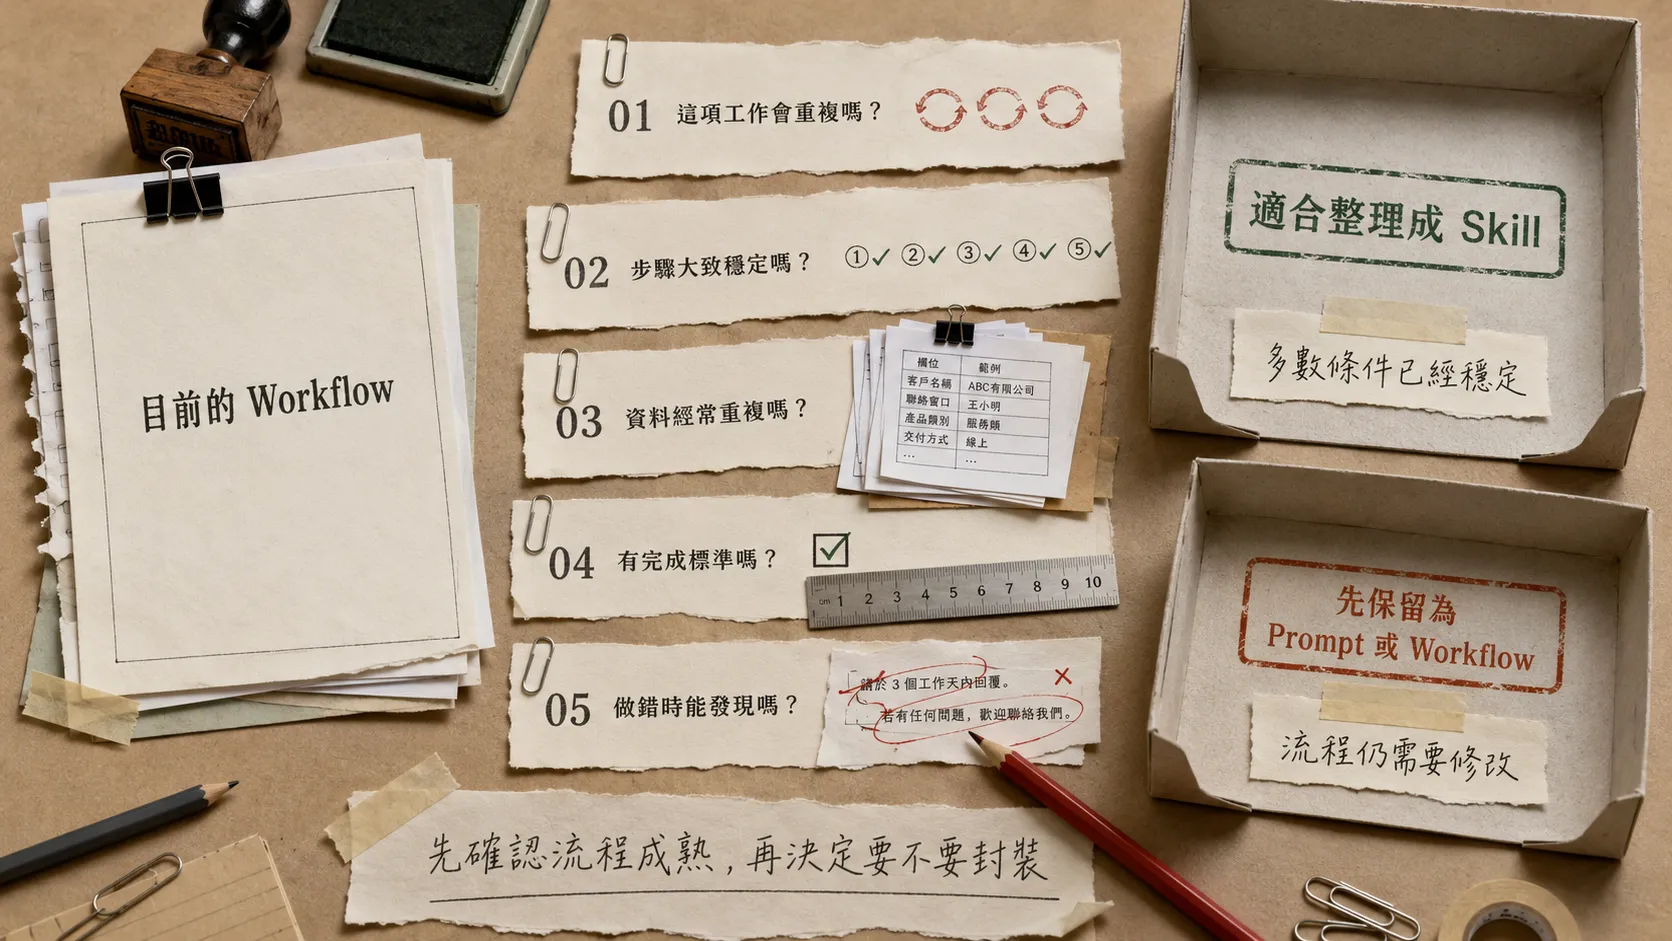 目前的 Workflow
01 這項工作會重複嗎？
02 步驟大致穩定嗎？ ① ② ③ ④ ⑤
03 資料經常重複嗎？
欄位 範例
客戶名稱 ABC有限公司
聯絡窗口 王小明
產品類別 服務類
交付方式 線上
… …
04 有完成標準嗎？
cm 1 2 3 4 5 6 7 8 9 10
05 做錯時能發現嗎？
請於 3 個工作天內回覆。
若有任何問題，歡迎聯絡我們。
先確認流程成熟，再決定要不要封裝
適合整理成 Skill
多數條件已經穩定
先保留為
Prompt 或 Workflow
流程仍需要修改